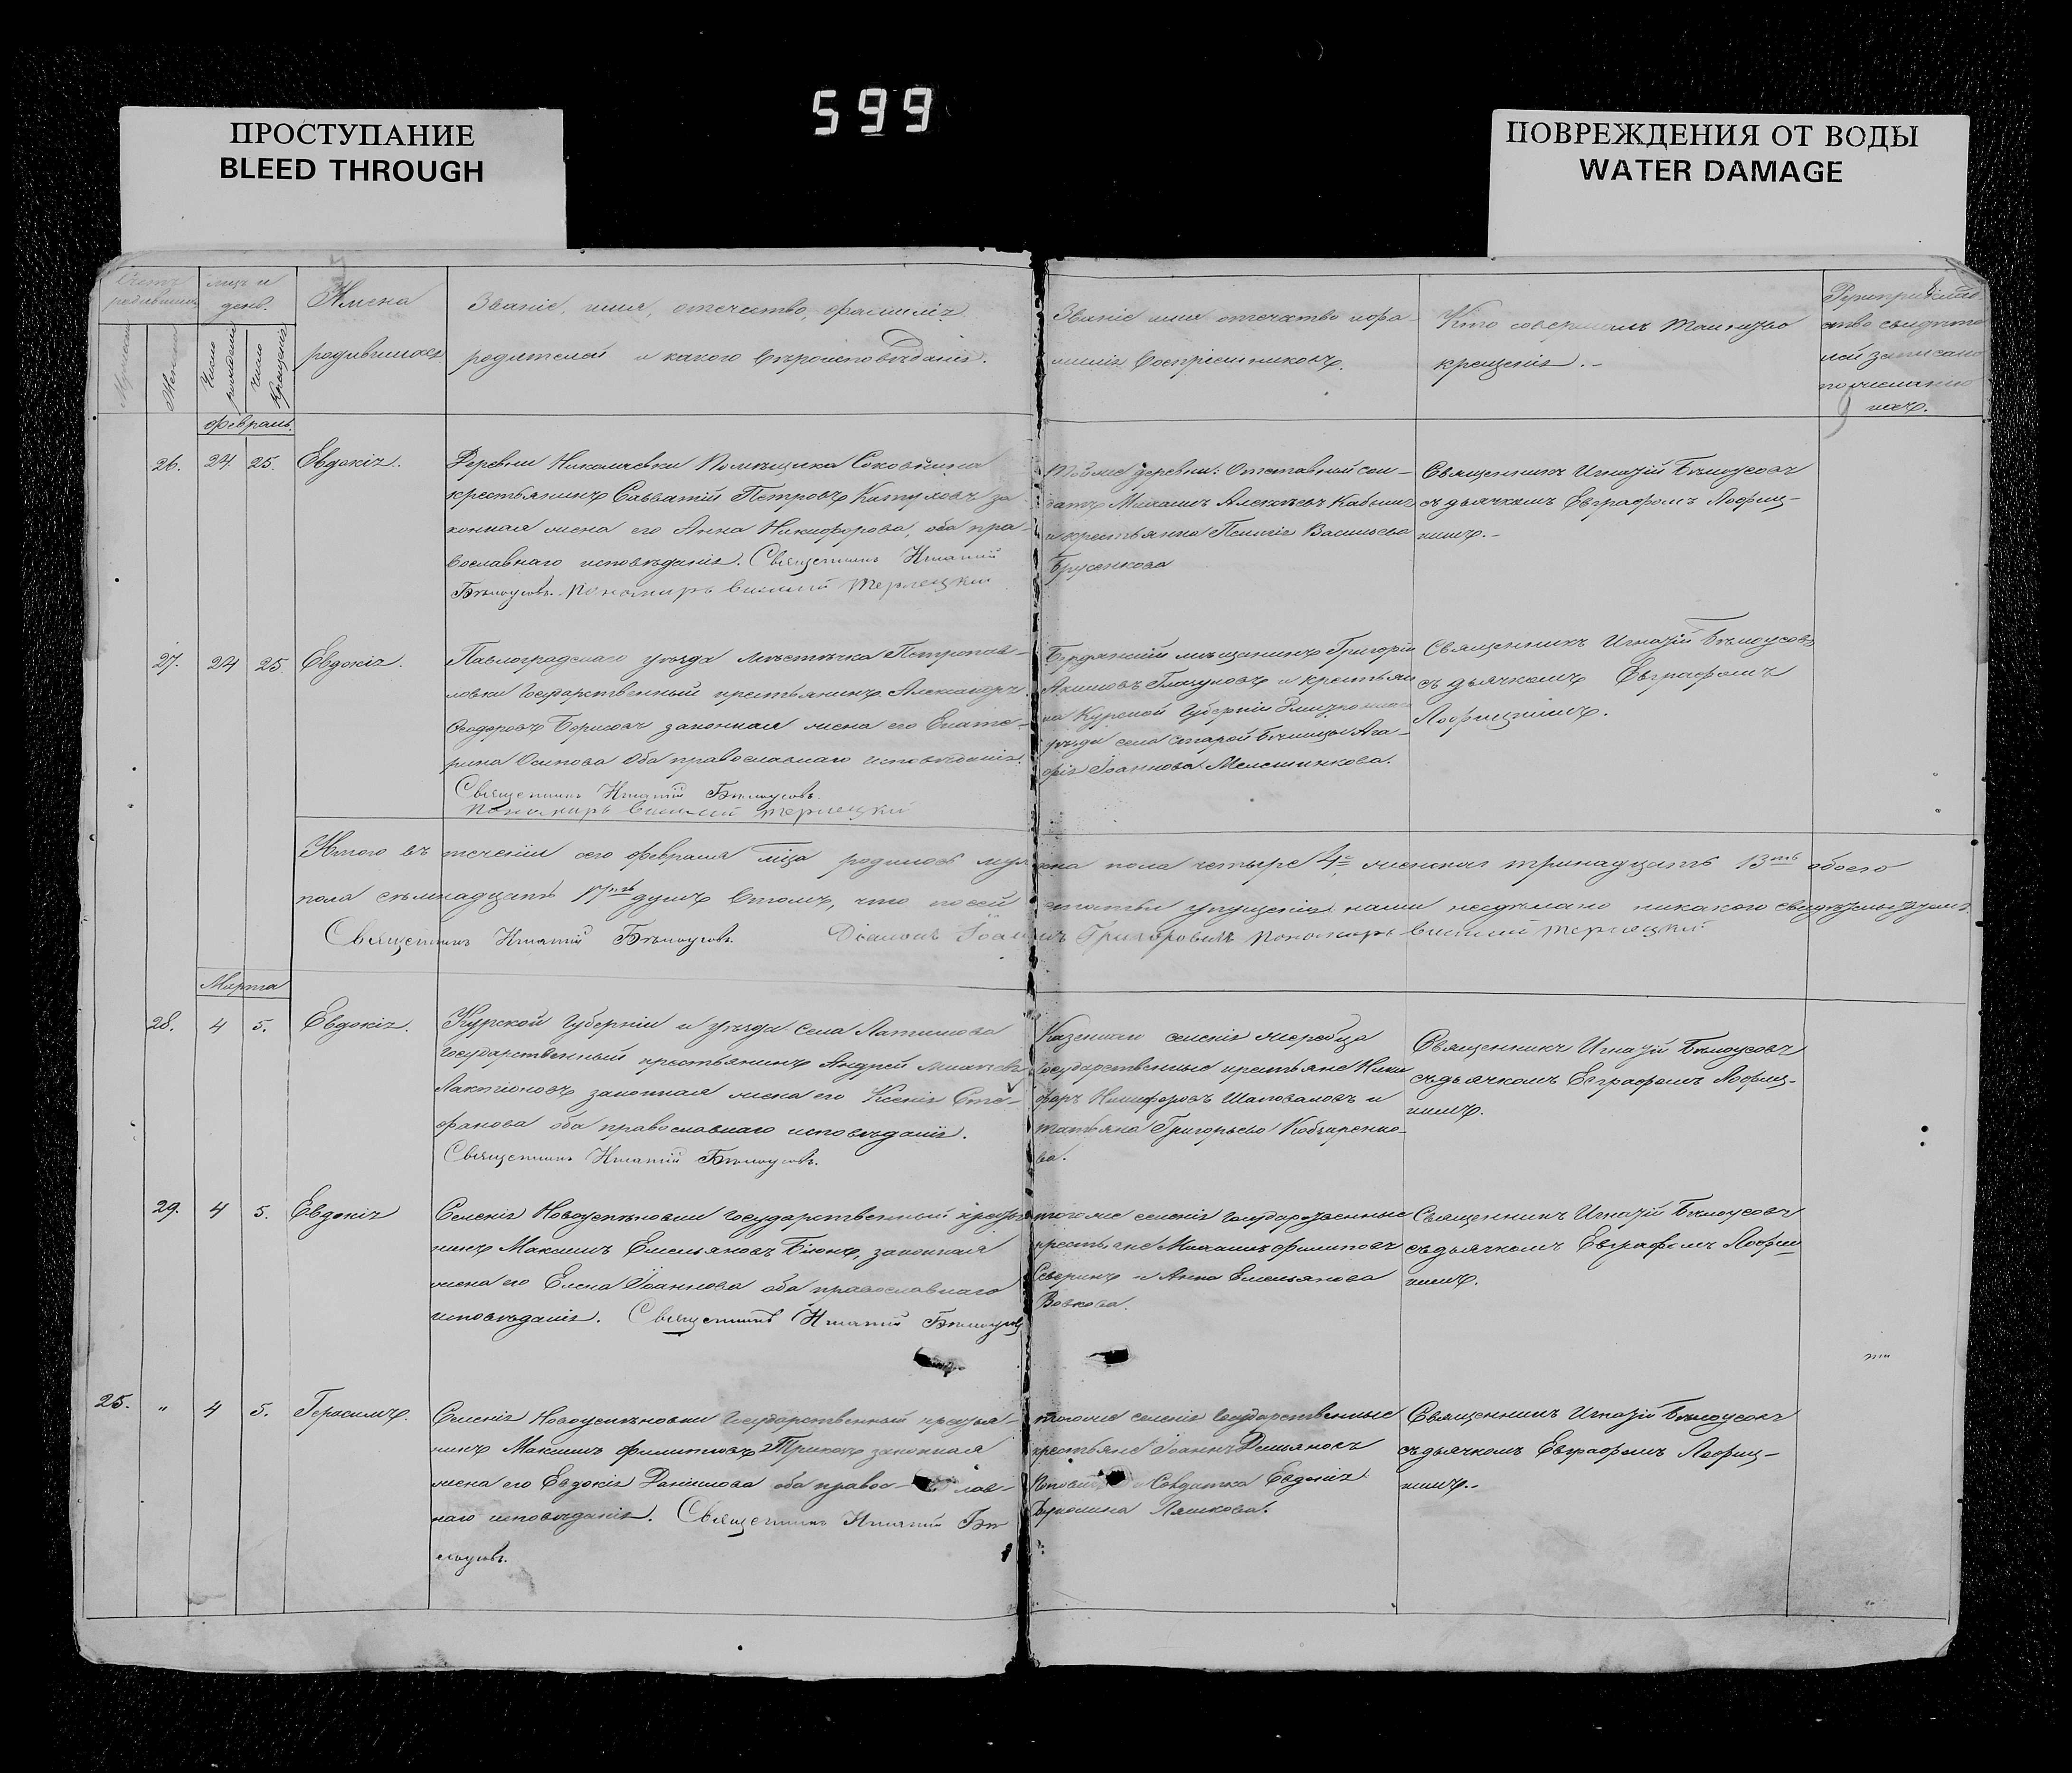 599
ПРОСТУПАНИЕ
BLEED THROUGH
ПОВРЕЖДЕНИЯ ОТ ВОДЫ
WATER DAMAGE
Счетъ родившихся
Мужеска
Женска
мѣсяцъ и день.
Число рожденія
Число крещенія
Имена
родившихся
Званіе, имя, отечество, фамилія
родителей и какого вѣроисповѣданія.
Званіе имя отечество и фа-
милія воспріемниковъ.
Кто совершалъ таинство
крещенія.
Рукоприклад-
ство свидѣте-
лей записано
по желанію
февраль.
26. 24. 25. Евдокія.
Деревни Николаевки помѣщика
крестьянинъ Савватій Петровъ за-
конная жена его Анна Никифорова, оба пра-
вославнаго исповѣданія. Священникъ Игнатій
Бѣлоусовъ. Пономарь Василій Терлецкій
Той же деревни: Отставный сол-
датъ Михаилъ Алексѣевъ
и крестьянка Васильева
Брусенкова
Священникъ Игнатій Бѣлоусовъ
съ дьячкомъ Евграфомъ Лофиц-
кимъ.
27. 24 25. Евдокія.
Павлоградскаго уѣзда мѣстечка Петропав-
ловки Государственный крестьянинъ Александръ
Ѳеодоровъ Борисовъ законная жена его Екате-
рина Осипова оба православнаго исповѣданія.
Священникъ Игнатій Бѣлоусовъ.
Пономарь Василій Терлецкій
Бердянскій мѣщанинъ Григорій
Акимовъ и крестьян
ка Курской Губерніи
уѣзда села Старой Бѣлицы Ага-
фія Іоаннова Мелешникова.
Священникъ Игнатій Бѣлоусовъ
съ дьячкомъ Евграфомъ
Лофицкимъ.
Итого въ теченіи сего февраля мѣсяца родилось мужеска пола четыре 4, женскаго тринадцать 13ть обоего
пола семьнадцать 17ть душъ въ томъ, что по сей статьи упущенія нами не сдѣлано никакого свидѣтельствуемъ.
Священникъ Игнатій Бѣлоусовъ. Діаконъ Іоаннъ Григоровичъ Пономарь Василій Терлецкій.
Марта
28. 4 5. Евдокія.
Курской Губерніи и уѣзда села
Государственный крестьянинъ Андрей
Лактіоновъ законная жена его Ксенія Сте-
фанова оба православнаго исповѣданія.
Священникъ Игнатій Бѣлоусовъ.
Казеннаго селенія жеребца
Государственные крестьяне Ники-
форъ Никифоровъ Шаповаловъ и
Татьяна Григорьева
ва.
Священникъ Игнатій Бѣлоусовъ
съ дьячкомъ Евграфомъ Лофиц-
кимъ.
29. 4 5. Евдокія
Селенія Новоуспеновки Государственный крестья
нинъ Максимъ Емельяновъ законная
жена его Елена Іоаннова оба православнаго
исповѣданія. Священникъ Игнатій Бѣлоусовъ
того же селенія Государственные
крестьяне Михаилъ Филиповъ
Северинъ и Анна Емельянова
Вовкова.
Священникъ Игнатій Бѣлоусовъ
съ дьячкомъ Евграфомъ Лофиц
кимъ.
25. " 4 5. Герасимъ.
Селенія Новоуспеновки Государственный крестья-
нинъ Максимъ Филиповъ законная
жена его Евдокія Данилова оба правос-лав-
наго исповѣданія. Священникъ Игнатій Бѣ
лоусовъ.
того же селенія Государственные
крестьяне Іоаннъ Демьяновъ
Солдатка Евдокія
Ляшкова.
Священникъ Игнатій Бѣлоусовъ
съ дьячкомъ Евграфомъ Лофиц-
кимъ.